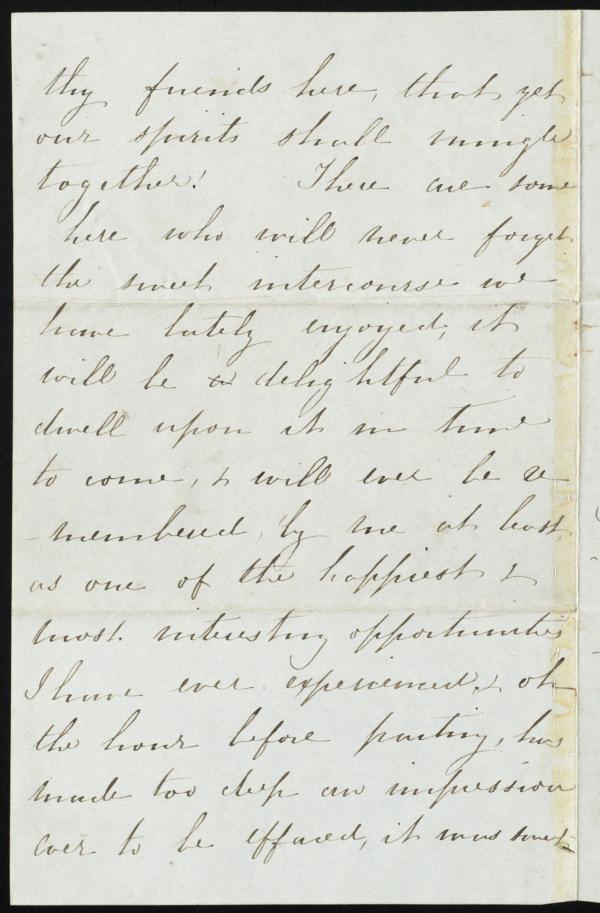 thy friends here, that yet
our spirits shall mingle
together! There are some
here who will never forget
the sweet intercourse we
have lately enjoyed, it
will be a delightful to
dwell upon it in time
to come, & will ever be re
-membered, by me at least
as one of the happiest &
most interesting opportunities
I have ever experienced, & oh
the hour before parting, has
made too deep an impression
ever to be effaced, it was sweet